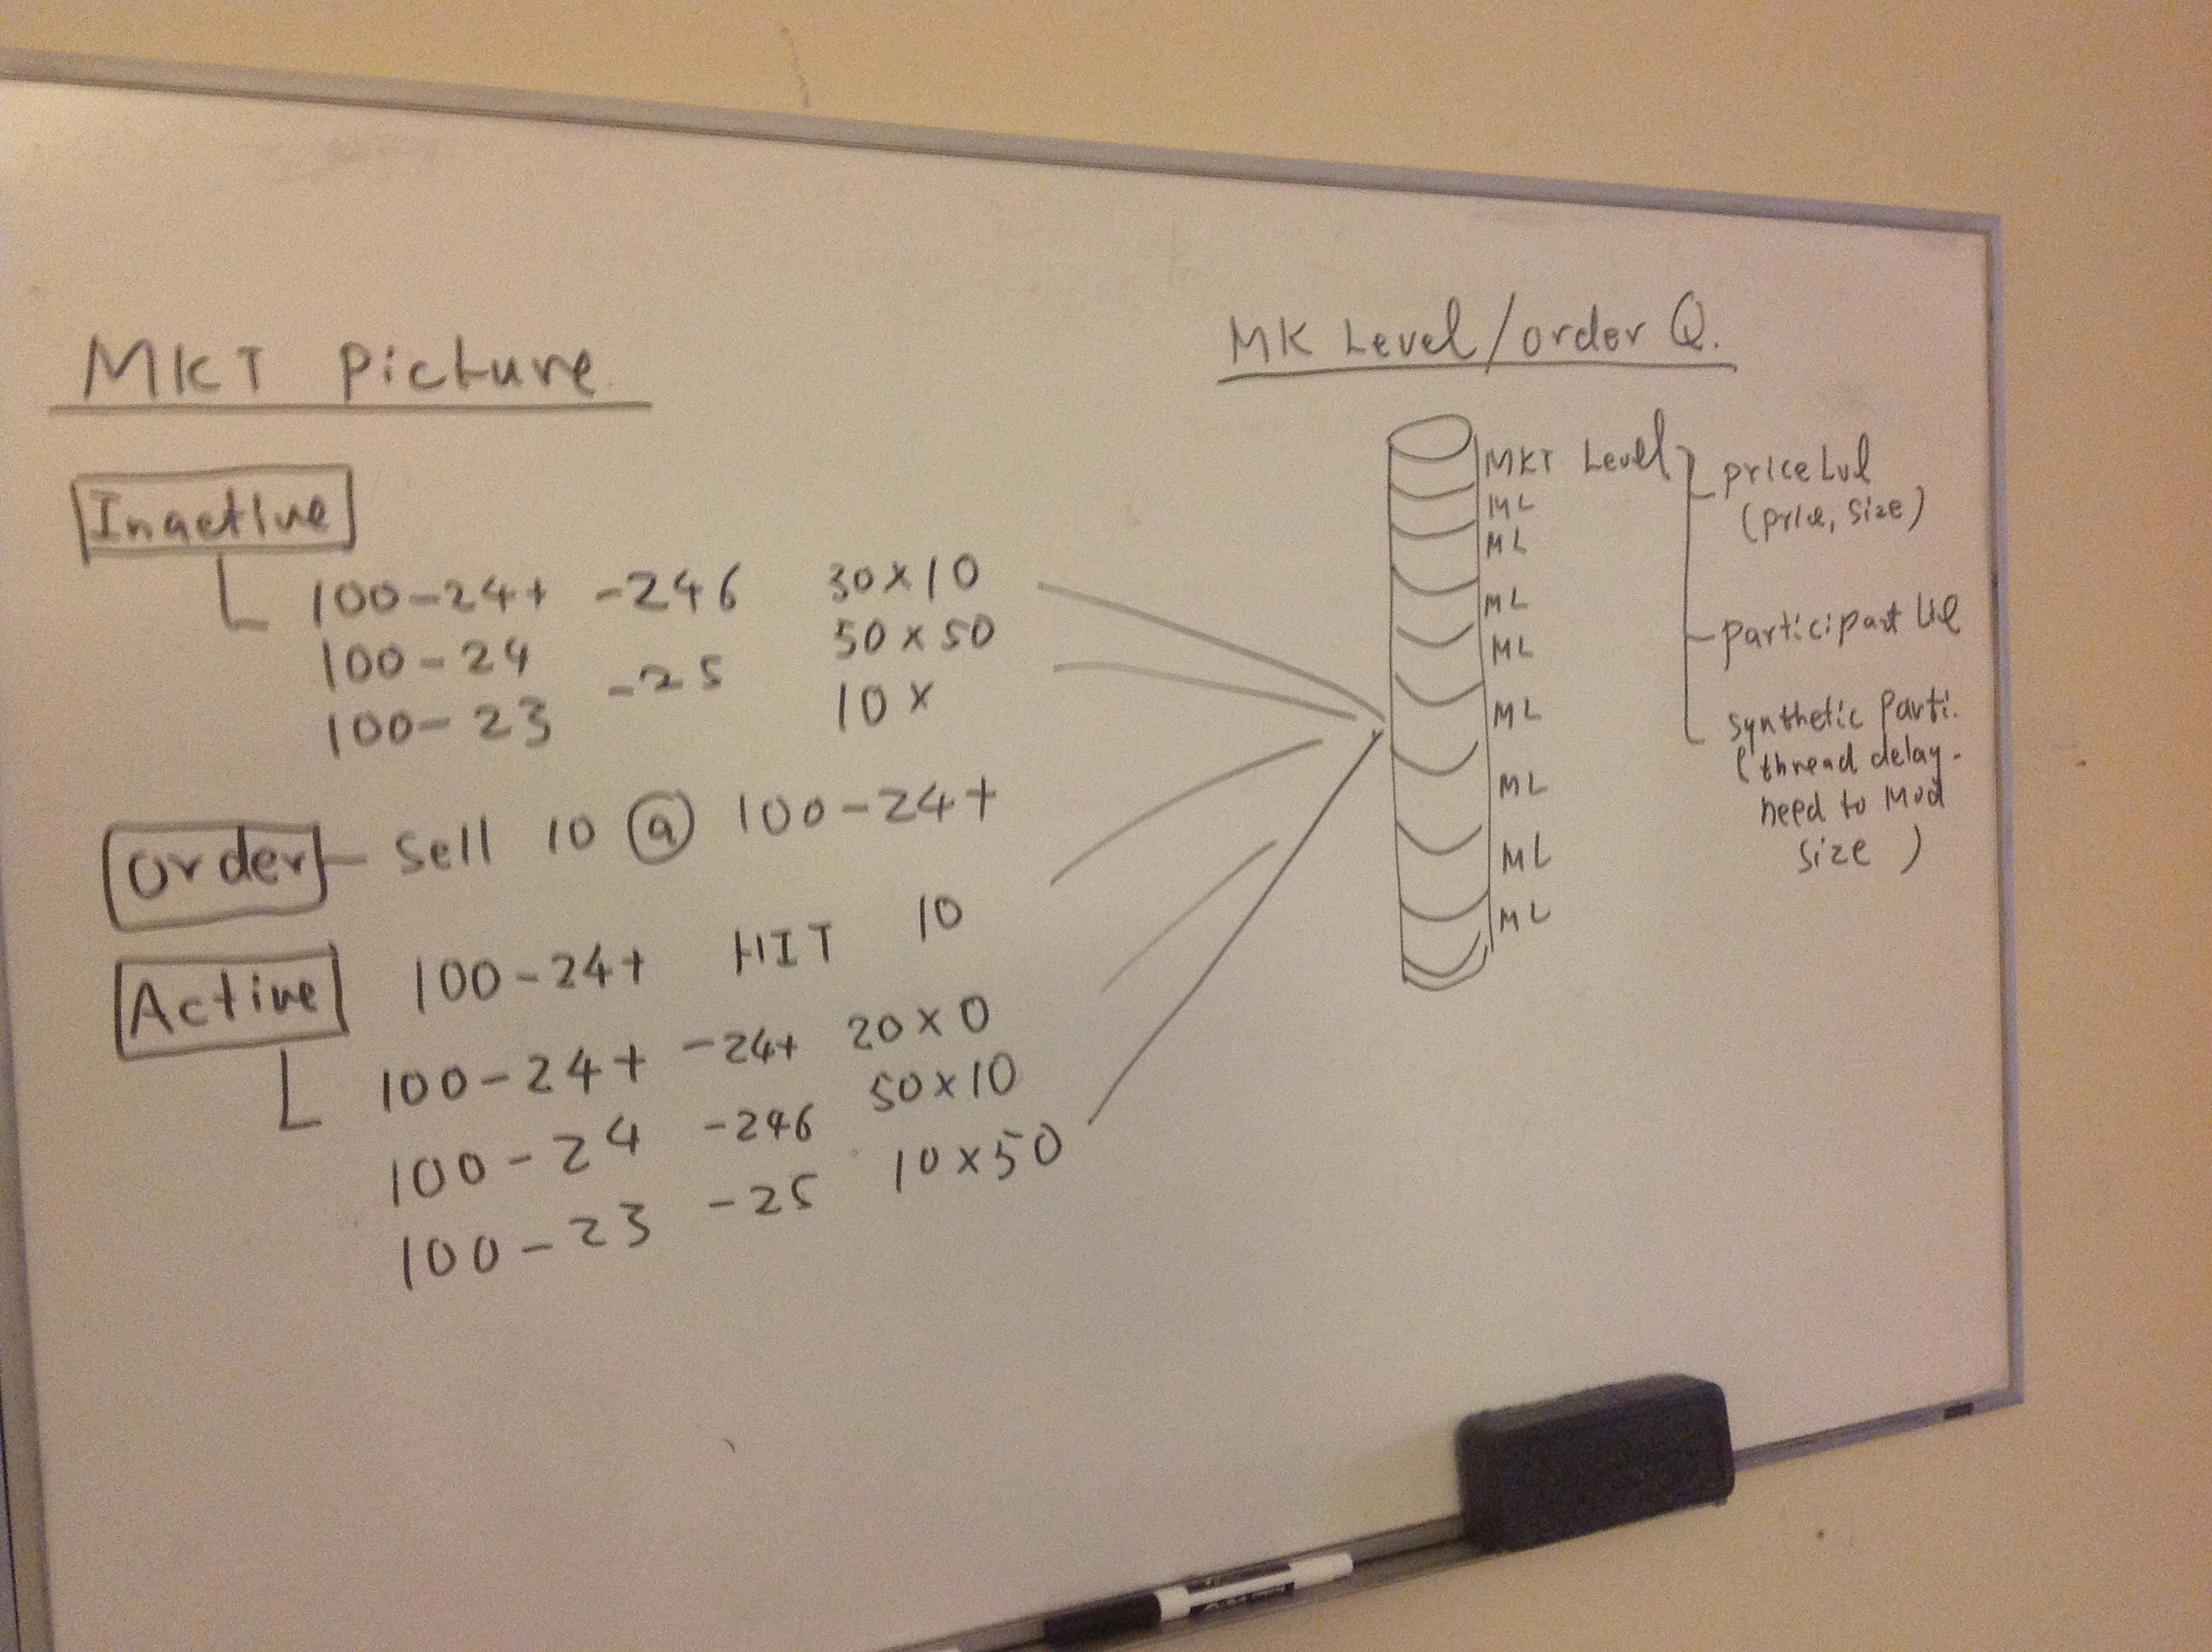 MKT Picture
Inactive
100-24+ -246 30x10
100-24 -25 50x50
100-23 10x
Order - Sell 10 @ 100-24+
Active 100-24+ HIT 10
100-24+ -24+ 20x0
100-24 -246 50x10
100-23 -25 10x50
MK Level/order Q.
MKT Level
ML
ML
ML
ML
ML
ML
ML
ML
price Lvl
(price, size)
participant
synthetic parti.
(thread delay.
need to Mod
size)